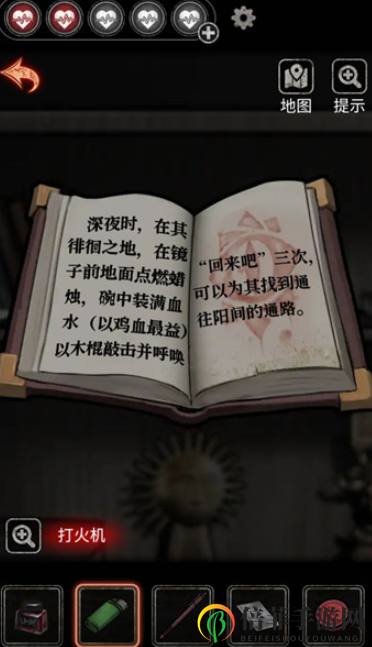 地图
提示
深夜时，在其
徘徊之地，在镜
子前地面点燃蜡
烛，碗中装满血
水（以鸡血最益）
以木棍敲击并呼唤
“回来吧”三次，
可以为其找到通
往阳间的通路。
打火机
BEIFEISHOUYOUWANG